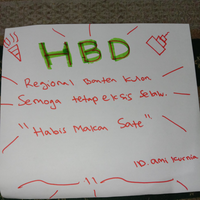 HBD
Regional Banten Kulon
Semoga tetap eksis selalu.
"Habis Makan Sate"
ID. ami kurnia